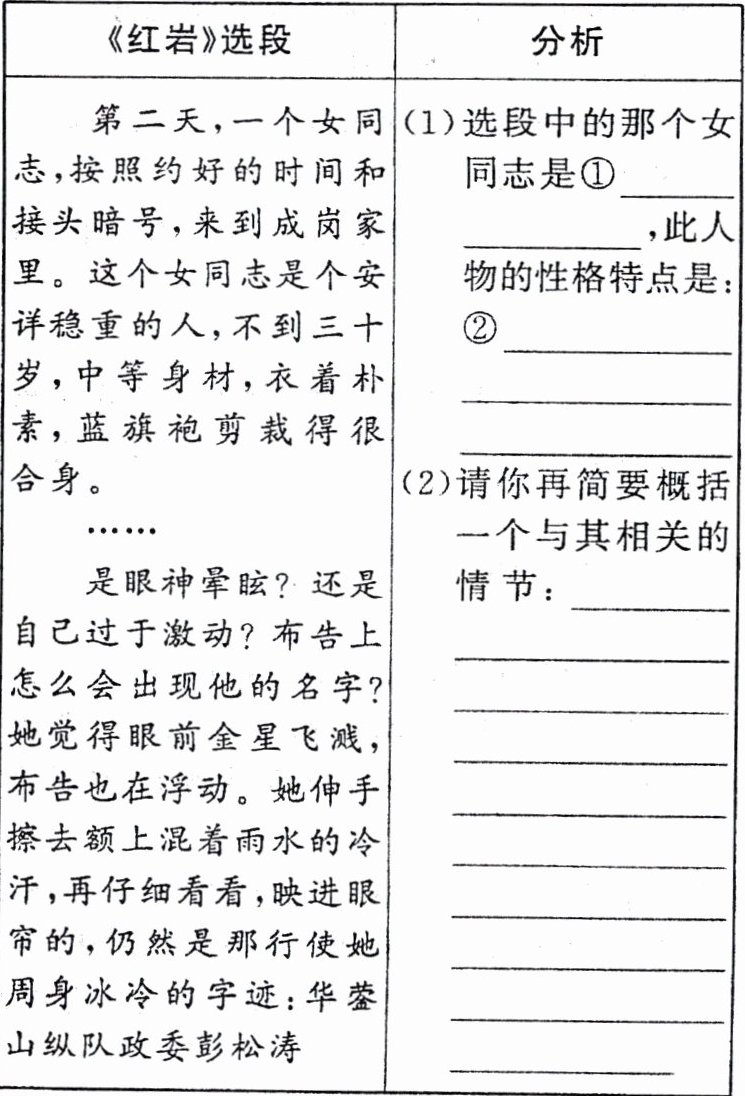 《红岩》选段
分析
第二天,一个女同
志,按照约好的时间和
接头暗号,来到成岗家
里。这个女同志是个安
详稳重的人,不到三十
岁,中等身材,衣着朴
素,蓝旗袍剪裁得很
合身。
……
是眼神晕眩?还是
自己过于激动?布告上
怎么会出现他的名字?
她觉得眼前金星飞溅,
布告也在浮动。她伸手
擦去额上混着雨水的冷
汗,再仔细看看,映进眼
帘的,仍然是那行使她
周身冰冷的字迹:华蓥
山纵队政委彭松涛
(1)选段中的那个女
同志是①
,此人
物的性格特点是:
②
(2)请你再简要概括
一个与其相关的
情节: